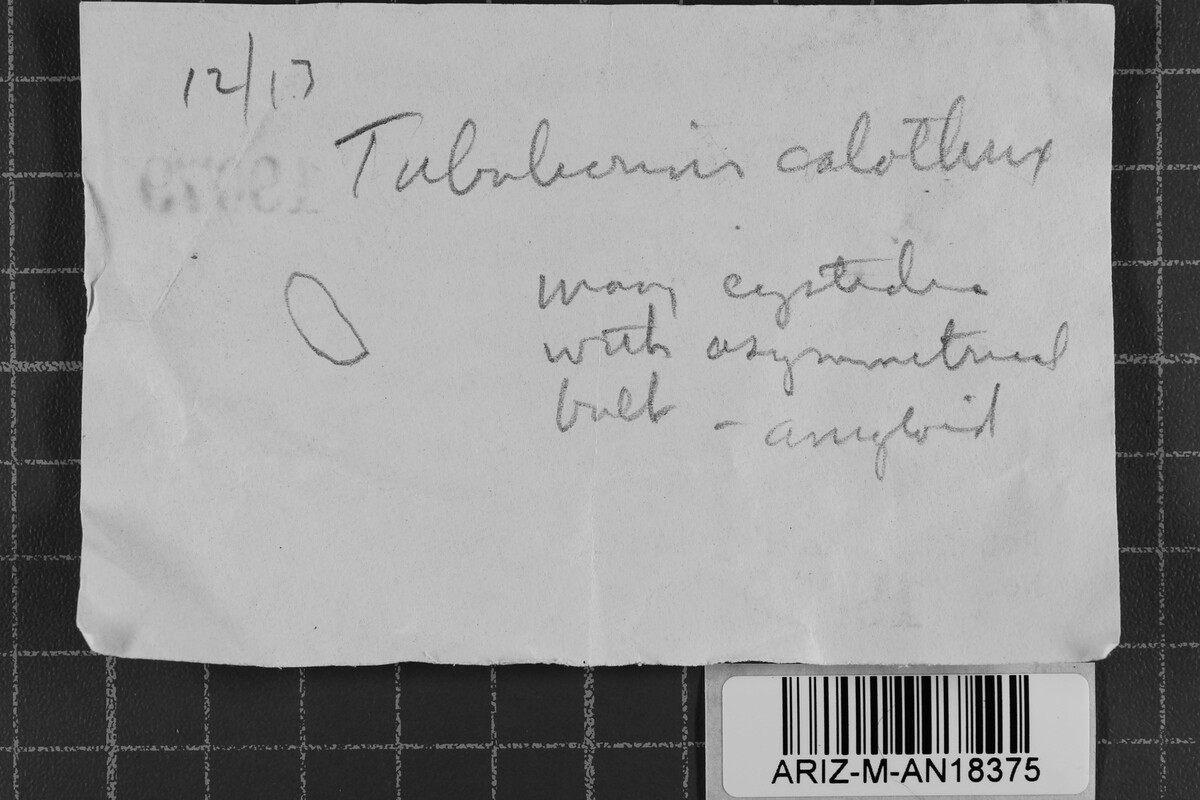 12/13
Tubulicrinis calothrix
many cystidia
with asymmetrical
bulb - amyloid
ARIZ-M-AN18375